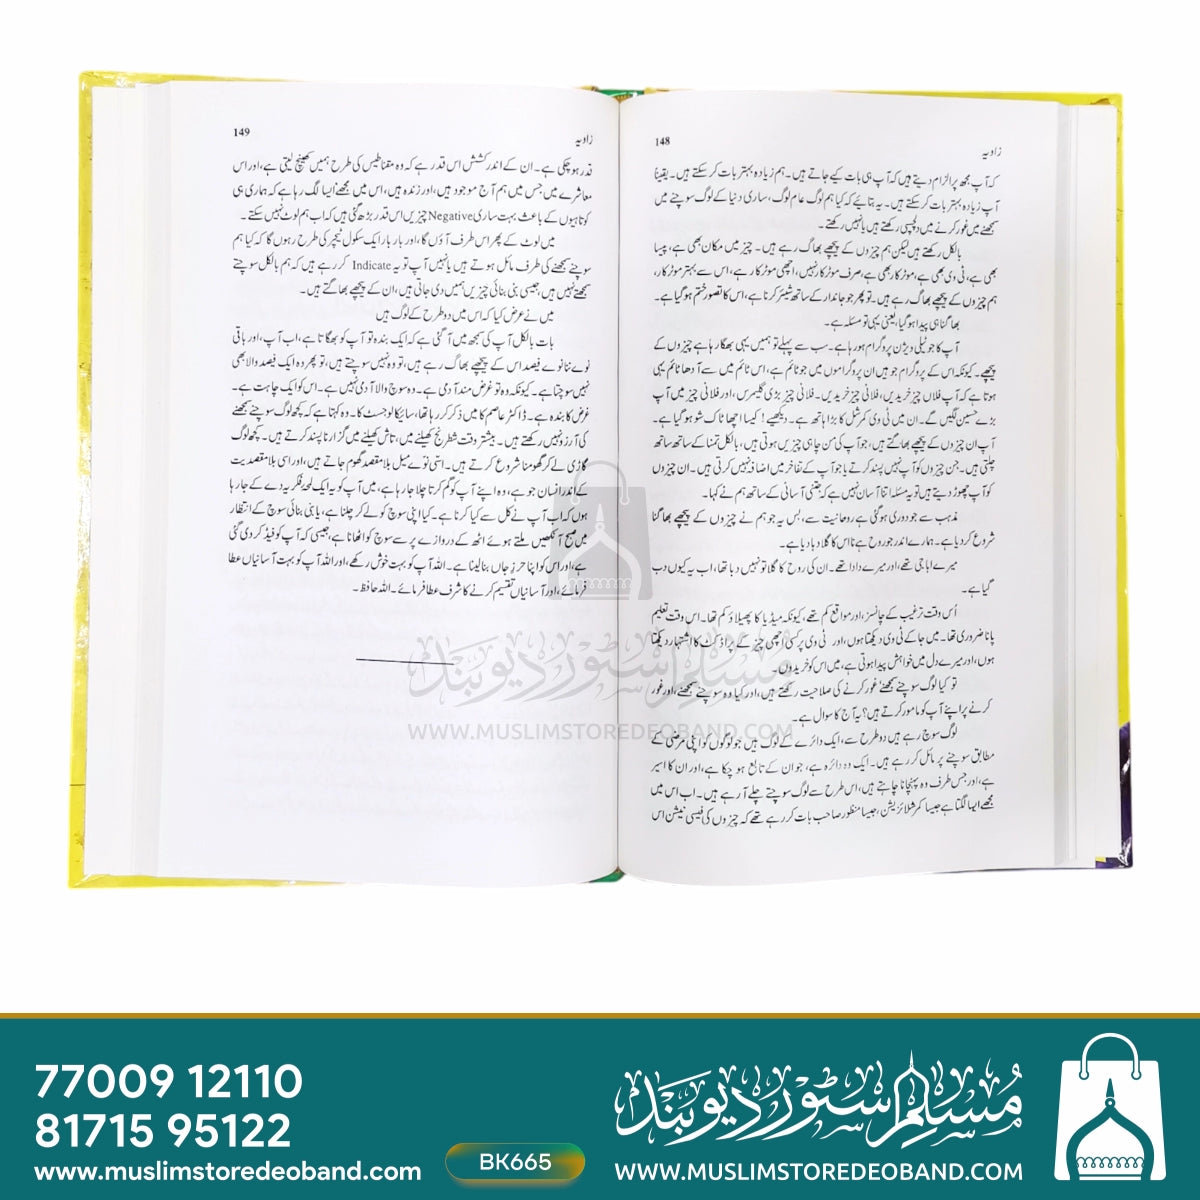 148
زاویہ
کہ آپ مجھ پر الزام دیتے ہیں کہ آپ ہی بات کیے جاتے ہیں۔ ہم زیادہ بہتر بات کر سکتے ہیں۔ یقیناً
آپ زیادہ بہتر بات کر سکتے ہیں۔ یہ بتائیے کہ کیا ہم لوگ عام لوگ، ساری دنیا کے لوگ سوچنے میں
سمجھنے میں غور کرنے میں دلچسپی رکھتے ہیں یا نہیں رکھتے۔
بالکل رکھتے ہیں لیکن ہم چیزوں کے پیچھے بھاگ رہے ہیں۔ چیز میں مکان بھی ہے، پیسا
بھی ہے، ٹی وی بھی ہے، موٹر کار بھی ہے، صرف موٹر کار نہیں، اچھی موٹر کار ہے، اس سے بہتر موٹر کار،
ہم چیزوں کے پیچھے بھاگ رہے ہیں۔ تو پھر جو جاندار کے ساتھ شیئر کرنا ہے، اس کا تصور ختم ہو گیا ہے۔
بھاگنا ہی پیدا ہو گیا، یعنی یہی تو مسئلہ ہے۔
آپ کا جو ٹیلی ویژن پروگرام ہو رہا ہے۔ سب سے پہلے تو ہمیں یہی بھگا رہا ہے چیزوں کے
پیچھے۔ کیونکہ اس کے پروگرام جو ہیں ان پروگراموں میں جو ٹائم ہے، اس ٹائم میں سے آدھا ٹائم یہی
ہوتا ہے کہ آپ فلاں چیز خریدیں، فلانی چیز خریدیں۔ فلانی چیز بڑی گلیمرس، اور فلانی چیز میں آپ
بڑے حسین لگیں گے۔ ان میں ٹی وی کمرشل کا بڑا ہاتھ ہے۔ دیکھیے! کیسا اچھا ٹاک شو ہو گیا ہے۔
آپ ان چیزوں کے پیچھے بھاگتے ہیں، جو آپ کی من چاہی چیزیں ہوتی ہیں، بالکل تمنا کے ساتھ ساتھ
چلتی ہیں۔ جن چیزوں کو آپ نہیں پسند کرتے یا جو آپ کے تفاخر میں اضافہ نہیں کرتی ہیں۔ ان چیزوں
کو آپ چھوڑ دیتے ہیں تو یہ مسئلہ اتنا آسان نہیں ہے کہ جتنی آسانی کے ساتھ ہم نے کہا۔
مذہب سے جو دوری ہو گئی ہے روحانیت سے، بس یہ جو ہم نے چیزوں کے پیچھے بھاگنا
شروع کر دیا ہے۔ ہمارے اندر جو روح ہے نا اس کا گلا دبا دیا ہے۔
میرے ابا جی تھے، اور میرے دادا تھے۔ ان کی روح کا گلا تو نہیں دبا تھا، اب یہ کیوں دب
گیا ہے۔
اُس وقت ترغیب کے چانسز، اور مواقع کم تھے، کیونکہ میڈیا کا پھیلاؤ کم تھا۔ اس وقت تعلیم
پانا ضروری تھا۔ میں جا کے ٹی وی دیکھتا ہوں، اور ٹی وی پر کسی اچھی چیز کے پراڈکٹ کا اشتہار دیکھتا
ہوں، اور میرے دل میں خواہش پیدا ہوتی ہے، میں اس کو خریدوں۔
تو کیا لوگ سوچنے سمجھنے غور کرنے کی صلاحیت رکھتے ہیں، اور کیا وہ سوچنے سمجھنے، اور غور
کرنے پر اپنے آپ کو مامور کرتے ہیں؟ یہ آج کا سوال ہے۔
لوگ سوچ رہے ہیں دو طرح سے، ایک دائرے کے لوگ ہیں جو لوگوں کو اپنی مرضی کے
مطابق سوچنے پر مائل کر رہے ہیں۔ ایک وہ دائرہ ہے، جو ان کے تابع ہو چکا ہے، اور ان کا اسیر
ہے، اور جس طرف وہ پہنچانا چاہتے ہیں، اس طرح سے لوگ سوچتے چلے آ رہے ہیں۔ اب اس میں
مجھے ایسا لگتا ہے جیسا کمرشلائزیشن، جیسا منظور صاحب بات کر رہے تھے کہ چیزوں کی فیسی نیشن اس
149
زاویہ
قدر ہو چکی ہے۔ ان کے اندر کشش اس قدر ہے کہ وہ مقناطیس کی طرح ہمیں کھینچ لیتی ہے، اور اس
معاشرے میں جس میں ہم آج موجود ہیں، اور زندہ ہیں، اس میں مجھے ایسا لگ رہا ہے کہ ہماری ہی
کوتاہیوں کے باعث بہت ساری Negative چیزیں اس قدر بڑھ گئی ہیں کہ اب ہم لوٹ نہیں سکتے۔
میں لوٹ کے پھر اس طرف آؤں گا، اور بار بار ایک سکول ٹیچر کی طرح رہوں گا کہ کیا ہم
سوچنے سمجھنے کی طرف مائل ہوتے ہیں یا نہیں آپ تو یہ Indicate کر رہے ہیں کہ ہم بالکل سوچتے
سمجھتے نہیں ہیں، جیسی بنی بنائی چیزیں ہمیں دی جاتی ہیں، ان کے پیچھے بھاگتے ہیں۔
میں نے عرض کیا کہ اس میں دو طرح کے لوگ ہیں
بات بالکل آپ کی سمجھ میں آ گئی ہے کہ ایک بندہ تو آپ کو بھگاتا ہے، اب آپ، اور باقی
نوے ننانوے فیصد اس کے پیچھے بھاگ رہے ہیں، تو وہ نہیں سوچتے ہیں، تو پھر وہ ایک فیصد والا بھی
نہیں سوچتا ہے۔ کیونکہ وہ تو غرض مند آدمی ہے۔ وہ سوچ والا آدمی نہیں ہے۔ اس کو ایک چاہت ہے۔
غرض کا بندہ ہے۔ ڈاکٹر عاصم کا میں ذکر کر رہا تھا، سائیکالوجسٹ کا۔ وہ کہتا ہے کہ کچھ لوگ سوچنے سمجھنے
کی آرزو نہیں رکھتے ہیں۔ بیشتر وقت شطرنج کھیلنے میں، تاش کھیلنے میں گزارنا پسند کرتے ہیں۔ کچھ لوگ
گاڑی لے کر گھومنا شروع کرتے ہیں۔ اتنی نوے میل بلا مقصد گھوم جاتے ہیں، اور اسی بلا مقصدیت
کے اندر انسان جو ہے، وہ اپنے آپ کو گم کرتا چلا جا رہا ہے، میں آپ کو یہ ایک لمحۂ فکریہ دے کے جا رہا
ہوں کہ اب آپ نے کل سے کیا کرنا ہے۔ کیا اپنی سوچ کو لے کر چلنا ہے، یا بنی بنائی سوچ کے انتظار
میں صبح آنکھیں ملتے ہوئے اٹھ کے دروازے پر سے سوچ کو اٹھانا ہے، جیسی کہ آپ کو فیڈ کر دی گئی
ہے، اور اس کو اپنا حرزِ جاں بنا لینا ہے۔ اللہ آپ کو بہت خوش رکھے، اور اللہ آپ کو بہت آسانیاں عطا
فرمائے، اور آسانیاں تقسیم کرنے کا شرف عطا فرمائے۔ اللہ حافظ۔
مسلم سٹور دیوبند
WWW.MUSLIMSTOREDEOBAND.COM
77009 12110
81715 95122
www.muslimstoredeoband.com
BK665
مسلم سٹور دیوبند
WWW.MUSLIMSTOREDEOBAND.COM